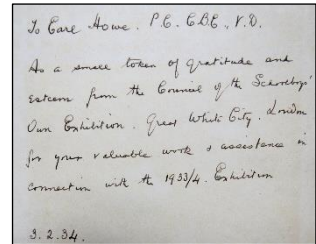 To Earl Howe. P.C. C.B.E., V.D.
As a small token of gratitude and
esteem from the Council of the Schoolboys'
Own Exhibition. Great White City. London
for your valuable work & assistance in
connection with the 1933/4. Exhibition
3.2.34.